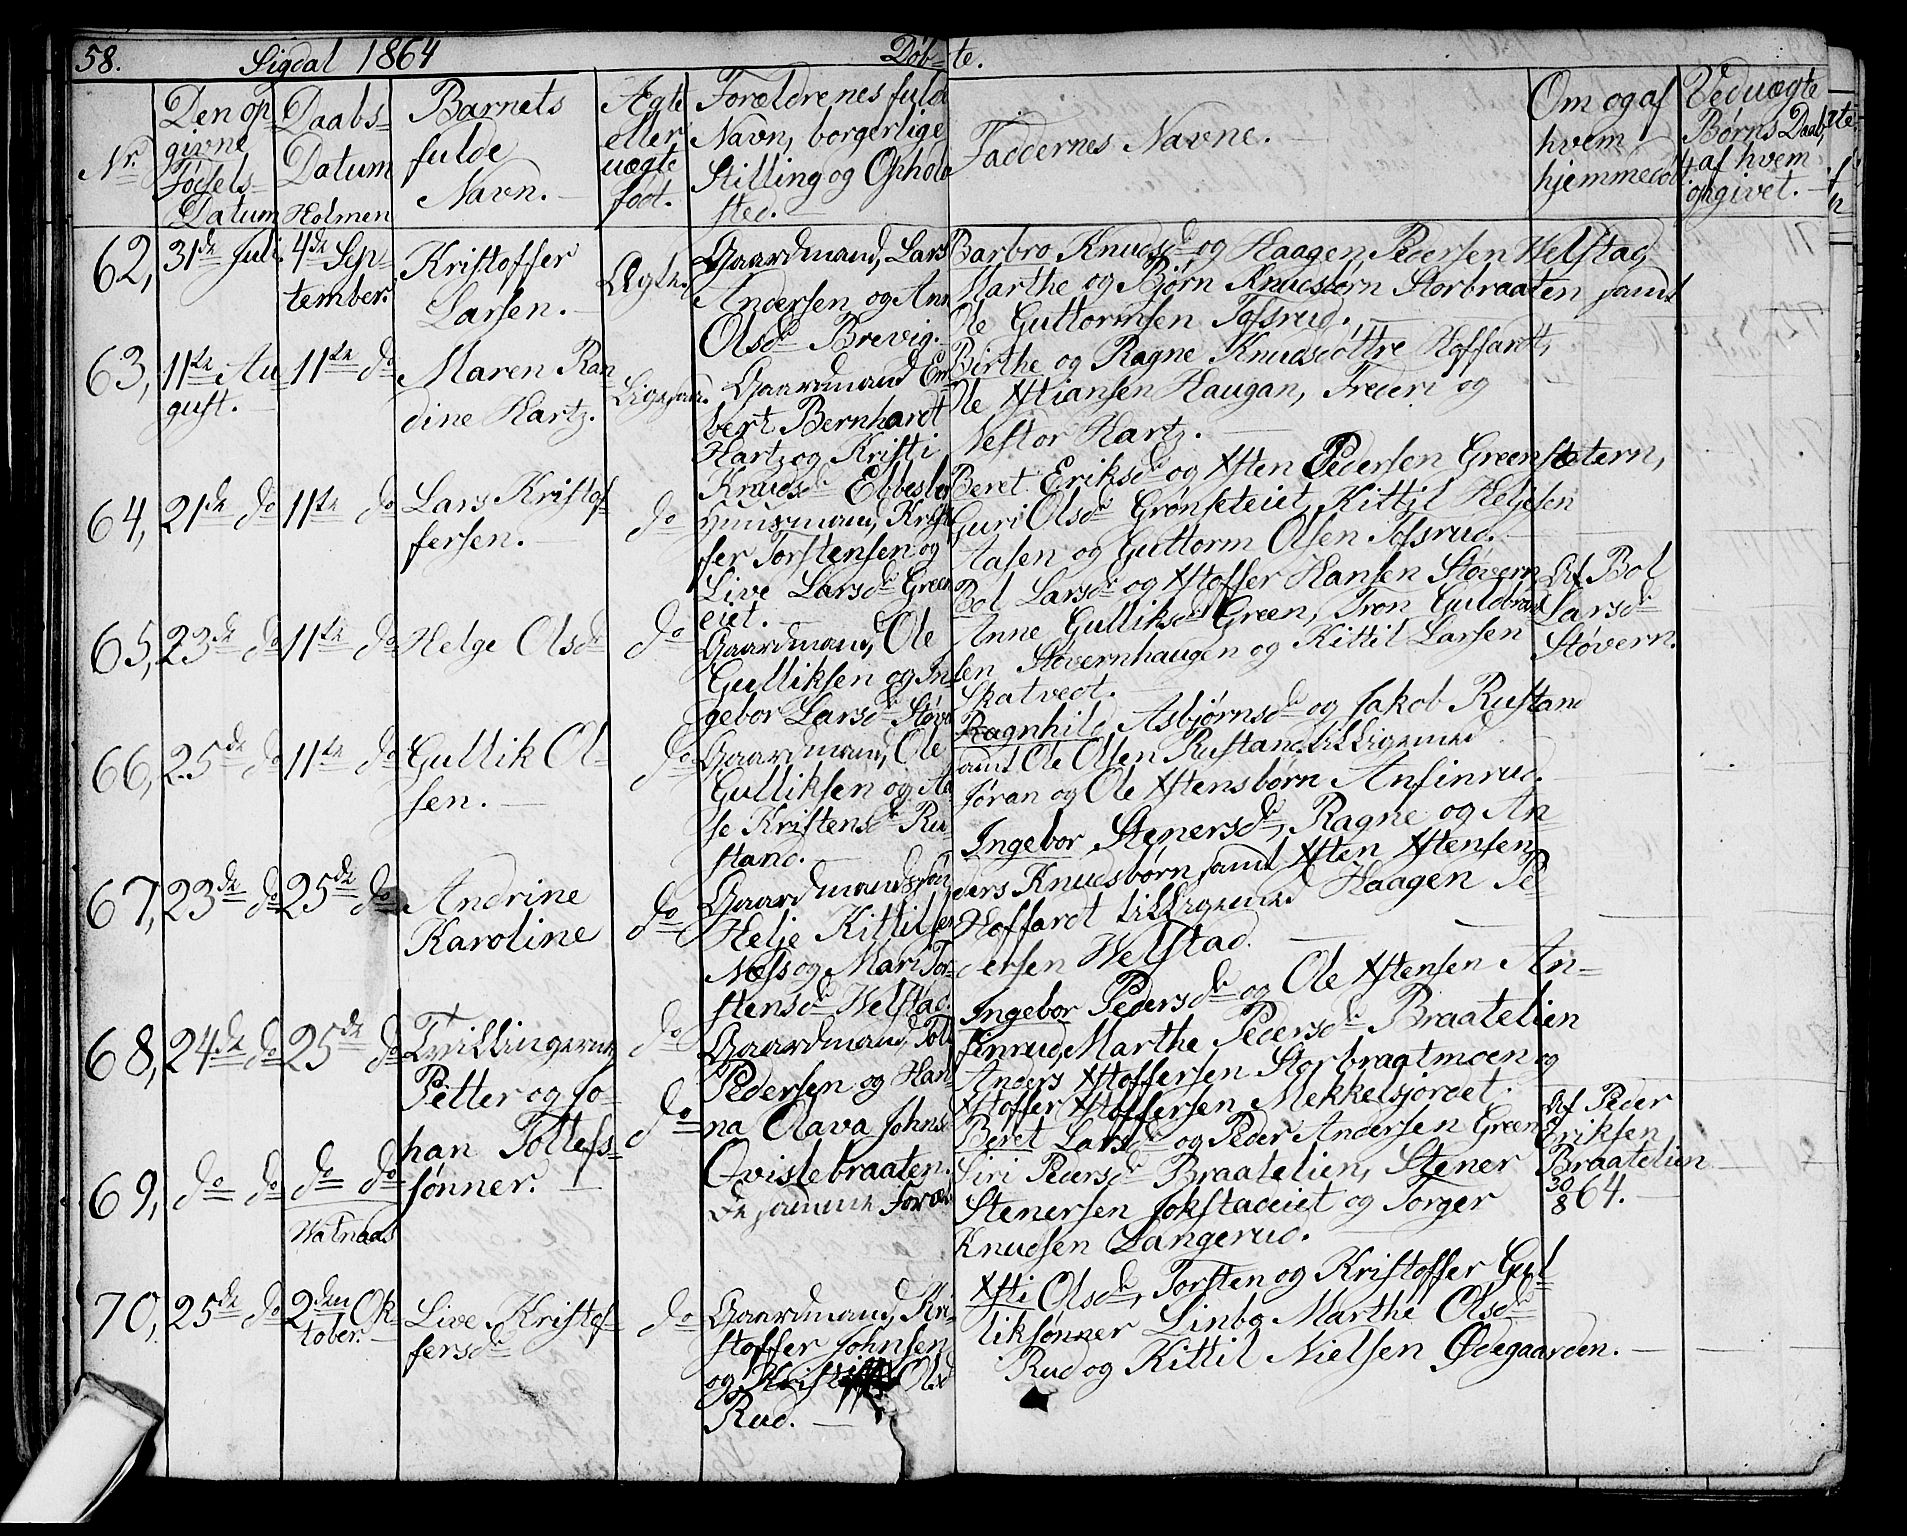 58. Sigdal 1864 Døb- te.
Nr.
Den op
givne
Fødsels-
Datum
Daabs-
Datum
Holmen
Barnets
fulde
Navn.
Ægte
eller
uægte
født.
Forældrenes fulde
Navn, borgerlige
Stilling og Ophold
sted.
Faddernes Navne.
Om og af
hvem
hjemmedøbt
Ved uægte
Børns Daab,
af hvem
opgivet.
62, 31de Juli.
4de Sep-
tember.
Kristoffer
Larsen.
Ægte.
Gaardmand, Lars
Andersen og Ann
Olsdr Brevig.
Barbro Knudsdr og Haagen Pedersen Welstad
Marthe og Bjørn Knudsbørn Storbraaten samt
Ole Guttormsen Tofsrud.
63, 11te Au
gust.
11te do
Maren Ran
dine Hartz.
Ligesaa.
Gaardmand Em
bert Bernhardt
Hartz og Kristi
Knudsdr Ebbeste
Birthe og Ragne Knudsdøttre Hoffardt,
Ole Xstiansen Haugan, Frederi og
Nestor Hartz.
64, 21de do
11te do
Lars Kristof
fersen.
do
Huusmand, Krist
fer Torstensen og
Live Larsdr Green
eiet.
Beret Eriksdr og Xsten Pedersen Greensætern,
Guri Olsdr Grønseteiet, Kittil Helgesen
Aasen og Guttorm Olsen Tofsrud.
65, 23de do
11te do
Helge Olsdr
do
Gaardmand, Ole
Gulliksen og In
gebor Larsdr Støve
Bol Larsdr og Xstoffer Hansen Støvern
Anne Gulliksdr Green, Tron Guldbrand
sen Støvernhaugen og Kittil Larsen
Skatvedt.
Af Bol
Larsdr
Støvern.
66, 25de do
11te do
Gullik Ol-
sen.
do
Gaardmand, Ole
Gulliksen og Aa
se Kristensdr Ru-
stand.
Ragnhild Asbjørnsdr og Jakob Rustand
samt Ole Olsen Rustand tilligemed
Jøran og Ole Xstensbørn Anfinrud.
67, 23de do
25de do
Andrine
Karoline
do
Gaardmandssøn
Helje Kittilsen
Næss og Mari Tor-
stensdr Welstad.
Ingebor Stenersdr, Ragne og An-
ders Knudsbørn samt Xsten Xstensen
Hoffardt tilligemed Haagen Pe-
dersen Welstad.
68, 24de do
25de do
Tvillingerne
Petter og Jo-
han Tollefs-
sønner.
do
Gaardmand, Toll
Pedersen og Han
na Olava Johns
Qvislebraaten.
Ingebor Pedersdr og Ole Xstensen An-
finrud, Marthe Pedersdr Braatelien
Anders Xstoffersen Storbraatmoen og
Xstoffer Xstoffersen Mekkelsjordet.
69, do do
do do
Watnaas
do
De samme Foræl
Beret Larsdr og Peder Andersen Green
Siri Pedersdr Braatelien, Stener
Stenersen Jokstadeiet og Torger
Knudsen Langerud.
Af Peder
Eriksen
Braatelien
30/8 64.
70, 25de do
2den Ok-
tober.
Live Kristof-
fersdr
do
Gaardmand, Kri-
stoffer Johnsen
og Kristi Olsd
Rud.
Xsti Olsdr, Torsten og Kristoffer Gul
liksønner Linbo Marthe Olsdr
Rud og Kittil Nielsen Ødegaarden.